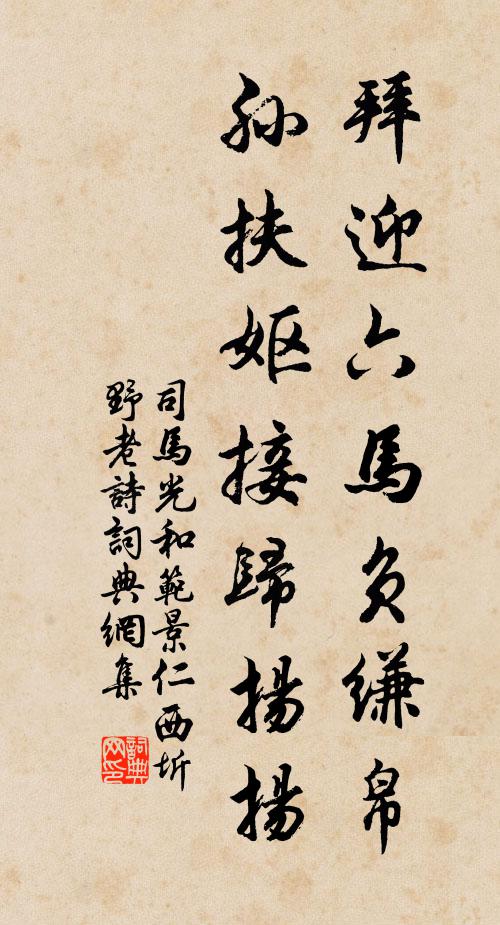 拜迎六馬負縑帛
孫扶嫗接歸揚揚
司馬光和範景仁西圻
野老詩詞典網集
詞典网印